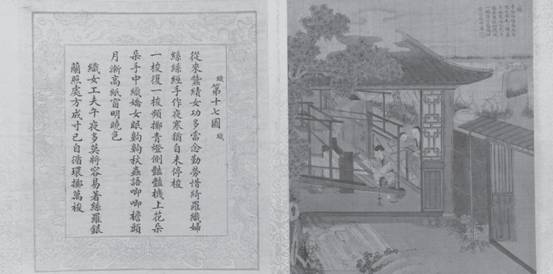 織 第十七圖 織
從來蠶績女功多當念勤勞惜綺羅織婦
絲絲經手作夜寒猶自未停梭
一梭復一梭頻擲青燈側豔豔機上花朵
朵手中織嬌女眠齁齁秋蟲語唧唧檐頭
月漸高紙窗明曉色
織女工夫午夜多莫將容易著絲羅銀
蘭照處方成寸已自循環擲萬梭